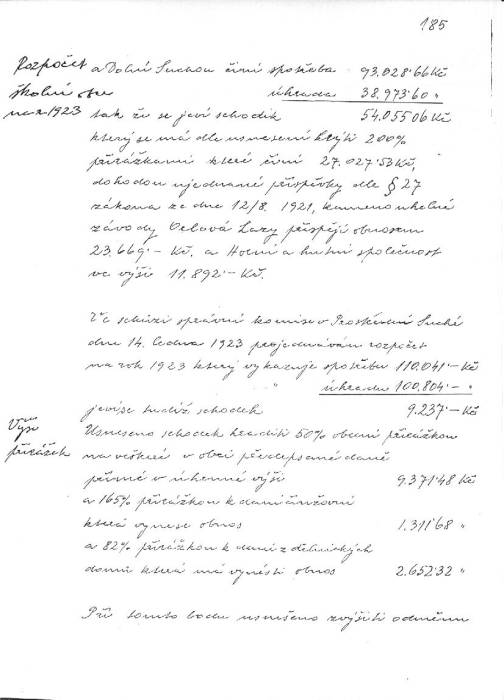 185
Rozpočet
školní obce
na r. 1923
a Dolní Suchou činí spotřeba 93.028·66 Kč
úhrada 38.973·60 "
tak že se jeví schodek 54.055 06 Kč
který se má dle usnesení krýti 200%
přirážkami které činí 27.027·53 Kč,
dohodou ujednané příspěvky dle § 27
zákona ze dne 12/8. 1921, kamenouhelné
závody Orlová Lazy přispějí obnosem
23.669·– Kč. a Horní a hutní společnost
ve výši 11.892·– Kč.
Ve schůzi správní komise v Prostřední Suché
dne 14. ledna 1923 projednáván rozpočet
na rok 1923 který vykazuje spotřebu 110.041·– Kč
" úhradu 100.804·– "
jeví se tudíž schodek 9.237·– Kč
Výše
přirážek
Usneseno schodek hraditi 50% obecní přirážkou
na veškeré v obci předepsané daně
přímé v úhrnné výši 9.371·48 Kč
a 165% přirážkou k dani činžovní
která vynese obnos 1.311·68 "
a 82% přirážkou k dani z dělnických
domů která má vynésti obnos 2.652·32 "
Při tomto bodu usneseno zvýšiti odměnu